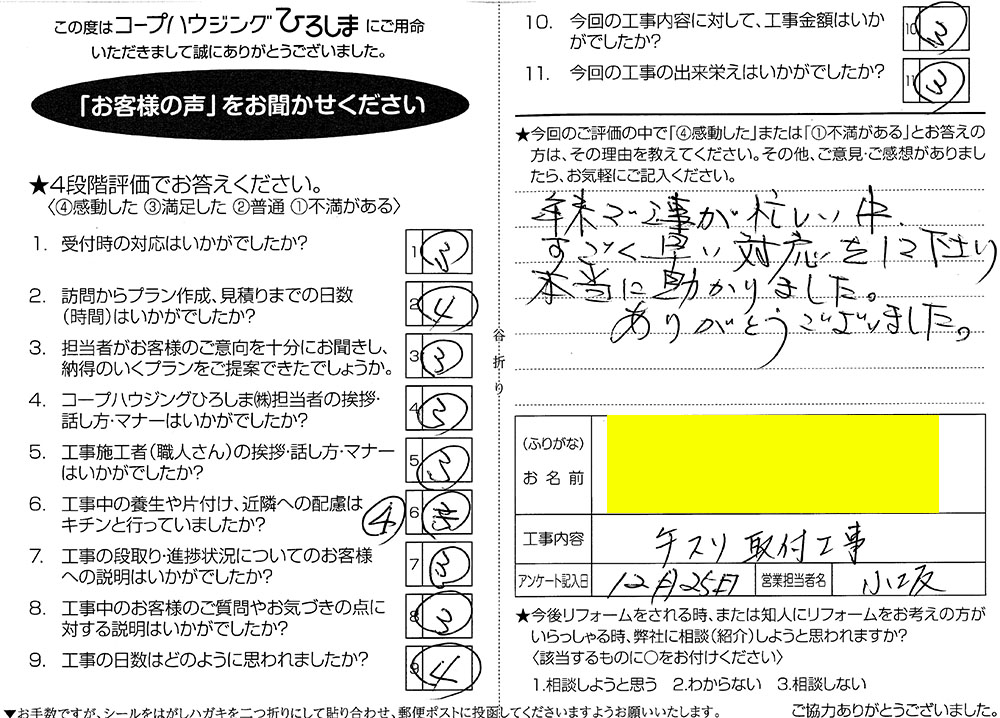 この度はコープハウジングひろしまにご用命
いただきまして誠にありがとうございました。
「お客様の声」をお聞かせください
★4段階評価でお答えください。
〈④感動した ③満足した ②普通 ①不満がある〉
1. 受付時の対応はいかがでしたか?
1 3
2. 訪問からプラン作成、見積りまでの日数
(時間)はいかがでしたか?
2 4
3. 担当者がお客様のご意向を十分にお聞きし、
納得のいくプランをご提案できたでしょうか。
3 3
4. コープハウジングひろしま㈱担当者の挨拶・
話し方・マナーはいかがでしたか?
4 3
5. 工事施工者(職人さん)の挨拶・話し方・マナー
はいかがでしたか?
5 3
6. 工事中の養生や片付け、近隣への配慮は
キチンと行っていましたか?
④ 6
7. 工事の段取り・進捗状況についてのお客様
への説明はいかがでしたか?
7 3
8. 工事中のお客様のご質問やお気づきの点に
対する説明はいかがでしたか?
8 3
9. 工事の日数はどのように思われましたか?
9 4
▼お手数ですが、シールをはがしハガキを二つ折りにして貼り合わせ、郵便ポストに投函してくださいますようお願いいたします。
谷折り
10. 今回の工事内容に対して、工事金額はいか
がでしたか?
10 3
11. 今回の工事の出来栄えはいかがでしたか?
11 3
★今回のご評価の中で「④感動した」または「①不満がある」とお答えの
方は、その理由を教えてください。その他、ご意見・ご感想がありまし
たら、お気軽にご記入ください。
年末で工事が忙しい中、
すごく早い対応をして下さり
本当に助かりました。
ありがとうございました。
(ふりがな)
お名前
工事内容 手スリ取付工事
アンケート記入日 12月25日 営業担当者名 小坂
★今後リフォームをされる時、または知人にリフォームをお考えの方が
いらっしゃる時、弊社に相談(紹介)しようと思われますか?
〈該当するものに○をお付けください〉
1.相談しようと思う 2.わからない 3.相談しない
ご協力ありがとうございました。